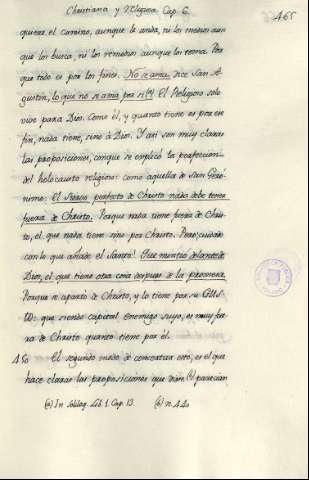 Christiana y Religiosa Cap. 6.
465
quieras el camino, aunque la anda, ni los medios aun
que los busca, ni los remedios aunque los toma. Por
que todo es por los fines. No se ama dice San A-
gustin, lo que no se ama por si (a) El Religioso solo
vive para Dios. Como él, y quanto tiene es por ese
fin, nada tiene, sino à Dios. Y asi son muy claras
las proposiciones, conque se explicó la perfeccion
del holocausto religioso: como aquella de San Gero-
nimo: El Siervo perfecto de Christo nada debe tener
fuera de Christo. Porque nada tiene fuera de Chris-
to, el que nada tiene sino por Christo. Pero cuidado
con lo que añade el Santo! Que mintió delante de
Dios, el que tiene otra cosa despues de la promesa.
Porque se aparta de Christo, y lo tiene por su
que siendo capital enemigo suyo, es muy fue-
ra de Christo quanto tiene por él.
450 El segundo modo de concertar esto, es el que
hace claras las proposiciones que dixe (b) parecian
(a) In Soliloq. Lib. 1. Cap. 13. (b) n. 440